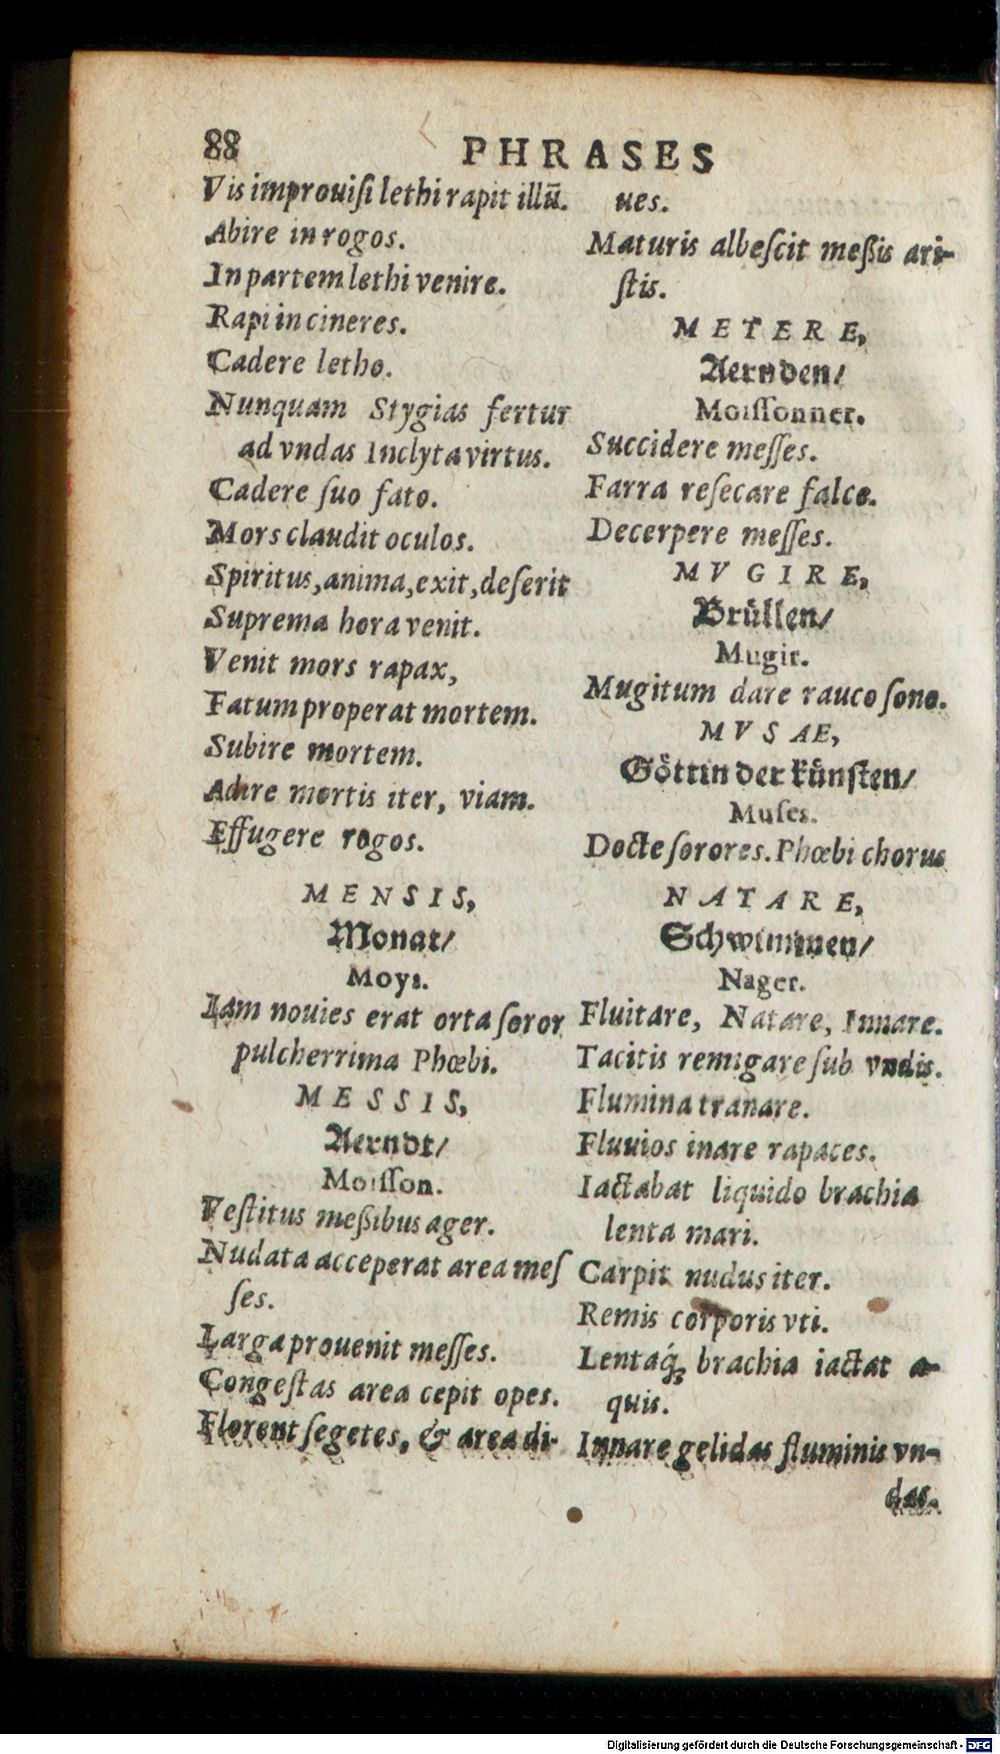 88
PHRASES
Vis improuiſi lethi rapit illū.
Abire in rogos.
In partem lethi venire.
Rapi in cineres.
Cadere letho.
Nunquam Stygias fertur
ad vndas Inclyta virtus.
Cadere ſuo fato.
Mors claudit oculos.
Spiritus, anima, exit, deſerit
Suprema hora venit.
Venit mors rapax,
Fatum properat mortem.
Subire mortem.
Adire mortis iter, viam.
Effugere rogos.
MENSIS,
Monat/
Moys.
Iam nouies erat orta ſoror
pulcherrima Phœbi.
MESSIS,
Aerndt/
Moiſſon.
Veſtitus meßibus ager.
Nudata acceperat area meſ
ſes.
Larga prouenit meſſes.
Congeſtas area cepit opes.
Florent ſegetes, & area di-
ues.
Maturis albeſcit meßis ari-
ſtis.
METERE,
Aernden/
Moiſſonner.
Succidere meſſes.
Farra reſecare falce.
Decerpere meſſes.
MVGIRE,
Brüllen/
Mugir.
Mugitum dare rauco ſono.
MVSAE,
Göttin der künſten/
Muſes.
Docte ſorores. Phœbi chorus
NATARE,
Schwimmen/
Nager.
Fluitare, Natare, Innare.
Tacitis remigare ſub vndis.
Flumina tranare.
Fluuios inare rapaces.
Iactabat liquido brachia
lenta mari.
Carpit nudus iter.
Remis corporis vti.
Lentaq́; brachia iactat a-
quis.
Innare gelidas fluminis vn-
das.
Digitalisierung gefördert durch die Deutsche Forschungsgemeinschaft - DFG